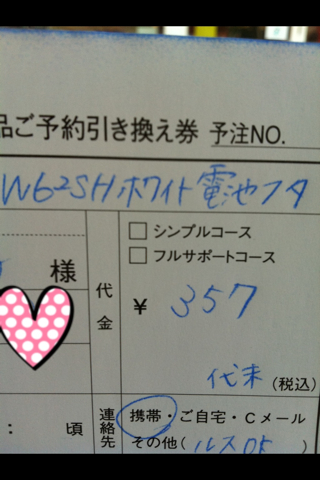 品ご予約引き換え券 予注NO.
W62SHホワイト電池フタ
□ シンプルコース
□ フルサポートコース
様
代金
¥ 357
代未 (税込)
: 頃
連絡先
携帯・ご自宅・Cメール
その他( ルスOK